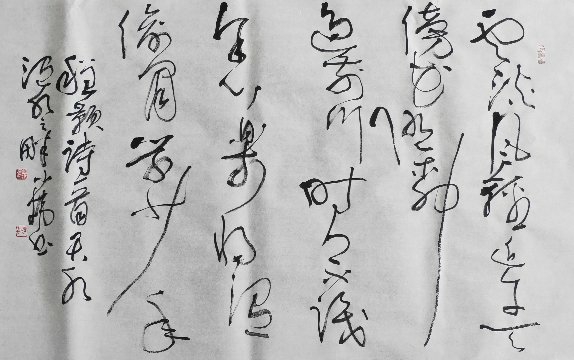 云淡风輕近午天
傍花随柳
过前川时人不识
余心乐将谓
偷闲学少年
程颢诗一首